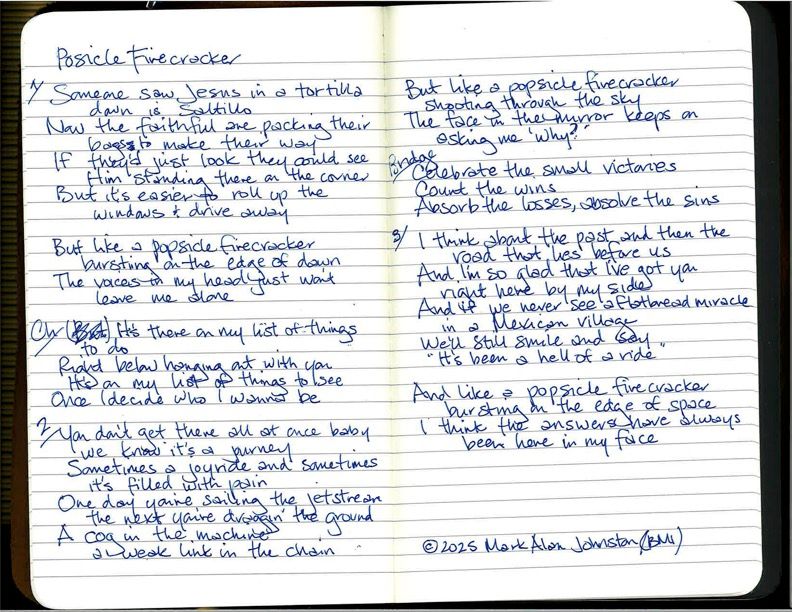 Posicle Firecracker
1/ Someone saw Jesus in a tortilla
down in Saltillo
Now the faithful are packing their
bags to make their way
If they'd just look they could see
Him standing there on the corner
But it's easier to roll up the
windows & drive away
But like a popsicle firecracker
bursting on the edge of dawn
The voices in my head just won't
leave me alone
Ch/ (But) It's there on my list of things
to do
Right below hanging out with you
It's on my list of things to see
Once I decide who I wanna be
2/ You don't get there all at once baby
we know it's a journey
Sometimes a joyride and sometimes
it's filled with pain
One day you're sailing the jetstream
the next you're draggin' the ground
A cog in the machine
a weak link in the chain
But like a popsicle firecracker
shooting through the sky
The face in the mirror keeps on
asking me 'why?'
Bridge/ Celebrate the small victories
Count the wins
Absorb the losses, absolve the sins
3/ I think about the past and then the
road that lies before us
And I'm so glad that I've got you
right here by my side
And if we never see a flatbread miracle
in a Mexican village
We'll still smile and say,
"It's been a hell of a ride"
And like a popsicle firecracker
bursting on the edge of space
I think the answers have always
been here in my face
©2025 Mark Alan Johnston (BMI)